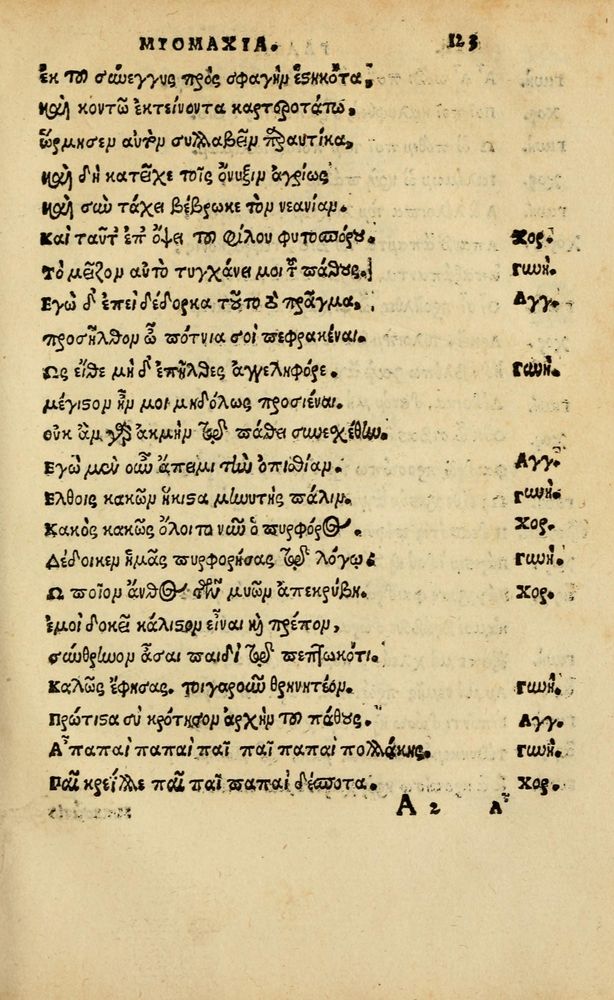 ΜΥΟΜΑΧΙΑ. 123
ἐκ τοῦ σύνεγγυς πρὸς σφαγὴν ἑστηκότα,
καὶ κοντῷ ἐκτείνοντα καρτεροτάτῳ,
ὥρμησεν αὐτὸν συλλαβεῖν πραυτίκα,
καὶ δὴ κατεῖχε τοῖς ὄνυξιν ἀγρίως
καὶ σὺν τάχει βέβρωκε τὸν νεανίαν.
Καὶ ταῦτ' ἐπ' ὄψει τοῦ φίλου φυτοσπόρου. Χορ.
Τὸ μεῖζον αὐτὸ τυγχάνει μοι τοῦ πάθους. Γυνή.
Εγὼ δ' ἐπεὶ δέδορκα τοῦτο τὸ πρᾶγμα, Αγγ.
προσῆλθον ὦ πότνια σοὶ πεφρακέναι.
Ως εἴθε μὴ δ' ἐπῆλθες ἀγγεληφόρε. Γυνή.
μέγιστον ἦν μοι μηδόλως προσιέναι.
οὐκ ἂν γὰρ ἀκμὴν τῷ πάθει συνεσχέθην.
Εγὼ μὲν οὖν ἄπειμι τὴν ὀπισθίαν. Αγγ.
Ελθοις κακῶν ἥκιστα μηνυτὴς πάλιν. Γυνή.
Κακὸς κακῶς ὄλοιτο νῦν ὁ πυρφόρος. Χορ.
Δέδοικεν ἡμᾶς πυρφορήσας τῷ λόγῳ. Γυνή.
Ω ποῖον ἄνθος τῶν μυῶν ἀπεκρύβη. Χορ.
ἐμοὶ δοκεῖ κάλιστον εἶναι καὶ πρέπον,
σύνθρηνον ᾆσαι παιδὶ τῷ πεπτωκότι.
Καλῶς ἔφησας. τοιγαροῦν θρηνητέον. Γυνή.
Πρώτιστα σὺ κρότησον ἀρχὴν τοῦ πάθους. Αγγ.
Α' παπαὶ παπαὶ παῖ παῖ παπαὶ πολλάκης. Γυνή.
Παῖ κρείλλε παῖ παῖ παπαὶ δέσποτα. Χορ.
Α 2 Α'